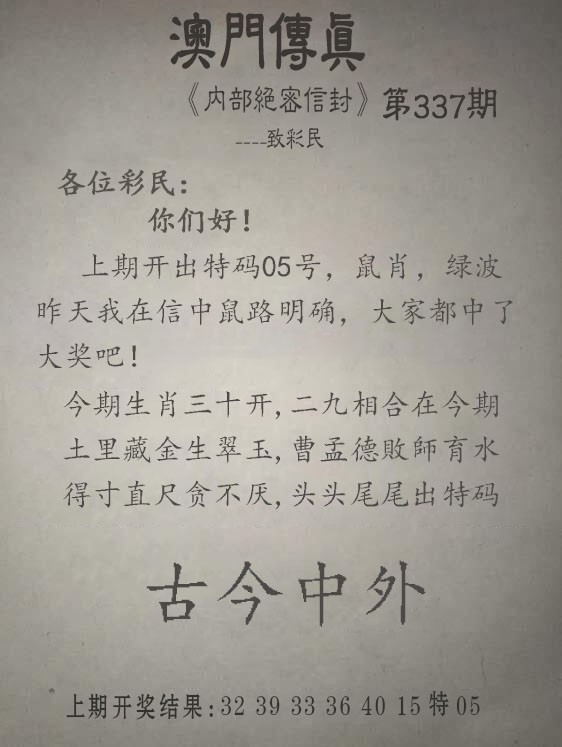 澳門傳真
《内部絕密信封》第337期
----致彩民
各位彩民：
你们好！
上期开出特码05号，鼠肖，绿波
昨天我在信中鼠路明确，大家都中了
大奖吧！
今期生肖三十开,二九相合在今期
土里藏金生翠玉,曹孟德敗師育水
得寸直尺贪不厌,头头尾尾出特码
古今中外
上期开奖结果:32 39 33 36 40 15特05